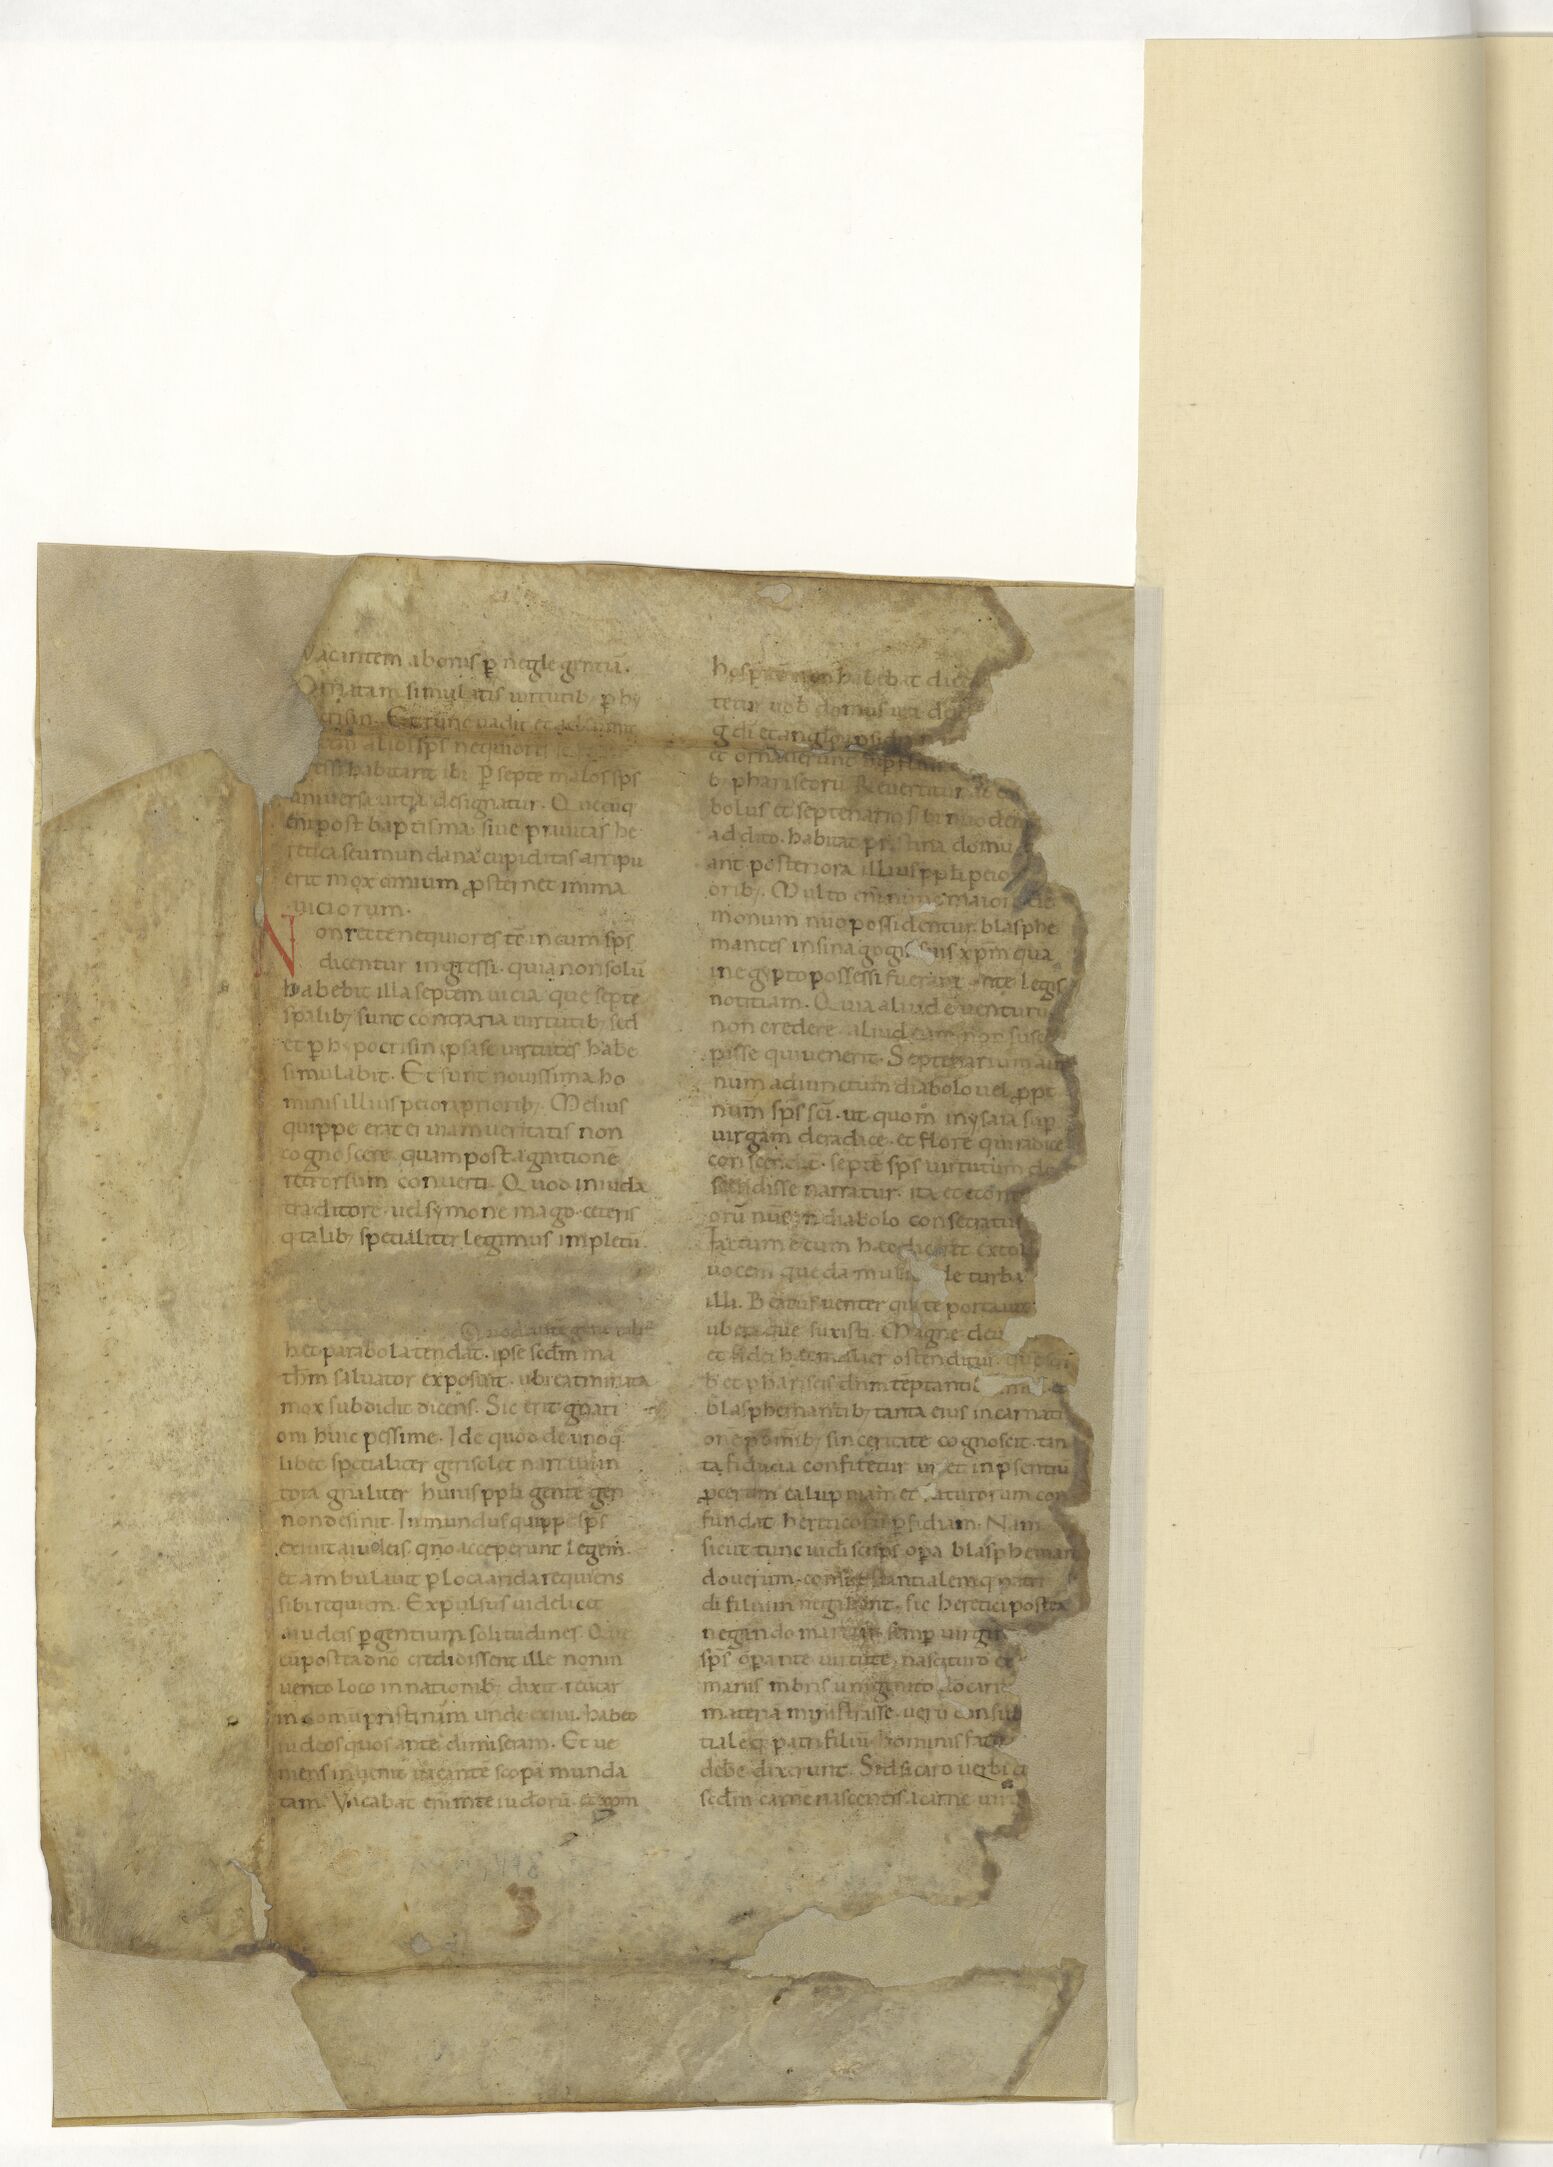 Vacantem a bonis p̱ neglegentiā.
Ornatam simulatis uirtutib; p̱ hy
crisin. Et tunc uadit et adsumit
alios sp̄s nequiores se
habitant ibi. P̱ septē malos sp̄s
uniuersa uitia designatur. Quecūq
eni post baptisma siue prauitas he
retica seu mundana cupiditas arripu
erit mox omnium ꝓsternet in ima
uiciorum.
Non recte nequiores tē in eum sp̄s
dicentur ingressi. quia non solū
habebit illa septem uicia que septē
sp̄alib; sunt contraria uirtutib; sed
et p̱ hypocrisin ipsas se uirtutes habe
simulabit. Et sunt nouissima ho
minis illius peiora priorib;. Melius
quippe erat ei uiam ueritatis non
cognoscere quam post agnitionē
retrorsum conuerti. Quod in iuda
traditore. uel symone mago. ceteris
q talib; specialiter legimus impletū.
Quod aute generalit̄
hec parabola tendat. ipse scd̄m ma
th̄m saluator exposuit. ubi eat finita
mox subdidit dicens. Sic erit gn̄ati
oni huic pessime. Ide quod de unoq
libet specialiter geri solet narratiūn
toia gn̄aliter huius pp̄li gente geri
non desinit. Inmundus quippe sp̄s
exiuit a iudeis. qn̄o acceperunt legem.
et ambulauit p̱ loca arida requirens
sibi requiem. Expulsus uidelicet
a iudeis p̱ gentium solitudines. Que
cū postea dn̄o credidissent ille non in
uento loco in nationib; dixit. reuertar
in domū pristinam unde exiui. habeo
iudeos quos ante dimiseram. Et ue
niens inuenit uacantē scopa munda
tam. Vacabat enim te iudeorū. et xp̄m
hospitē non habebat dic
tetur uob̄ domus ura de
g di et anglorum
et ornauerunt sup̱flu
b; phariseorū. Reuertitur ad
bolus et septenario sibi nuo demo
addito. habitat pristina domū
ant posteriora illius pp̄li peio
orib;. Multo eni nunc maiori de
monum nuo possidentur blasphe
mantes in sinagogis suis xp̄m qua
in egypto possessi fuerant ante legis
notitiam. Quia aliud ē uenturū
non credere. aliud eum non susce
pisse qui uenerit. Septenarium aut
num adiunctum diabolo uel ꝓpt
num sp̄s sc̄i. ut quom̄ in ysaia sup̱
uirgam de radice. et flore qui radice
conscendit. septē sp̄s uirtutum de
scendisse narratur. ita et econt
orū nūs in diabolo consecratus
Factum ē cum hec diceret extoll
uocem queda muli de turba
illi. Beatus uenter qui te portauit
ubera que suxisti. Magne deu
et fidei hec mulier ostenditur. que scri
b et phariseis dnm tēptantib; simul et
blasphemantib; tanta eius incarnati
onē p̱ omnib; sinceritate cognoscit. tan
ta fiducia confitetur ut et in p̄sentiū
ꝓcerum calupniam et futurorum con
fundat hereticorū p̱fidiam. Nam
sicut tunc iudei sc̄i sp̄s op̱a blasphemant
do uerum. consubstantialemq patri
di filium negabant. sic heretici postea
negando mariam semp̱ uirginē
sp̄s op̱ante uirtute. nascituro ex
manis m̄bris unigenito do carnis
materiā ministrasse. uerū consub
tialeq patri filiū hominis fat
debe dixerunt. Sed si caro uerbi d
scd̄m carnē nascentis. a carne uir
3